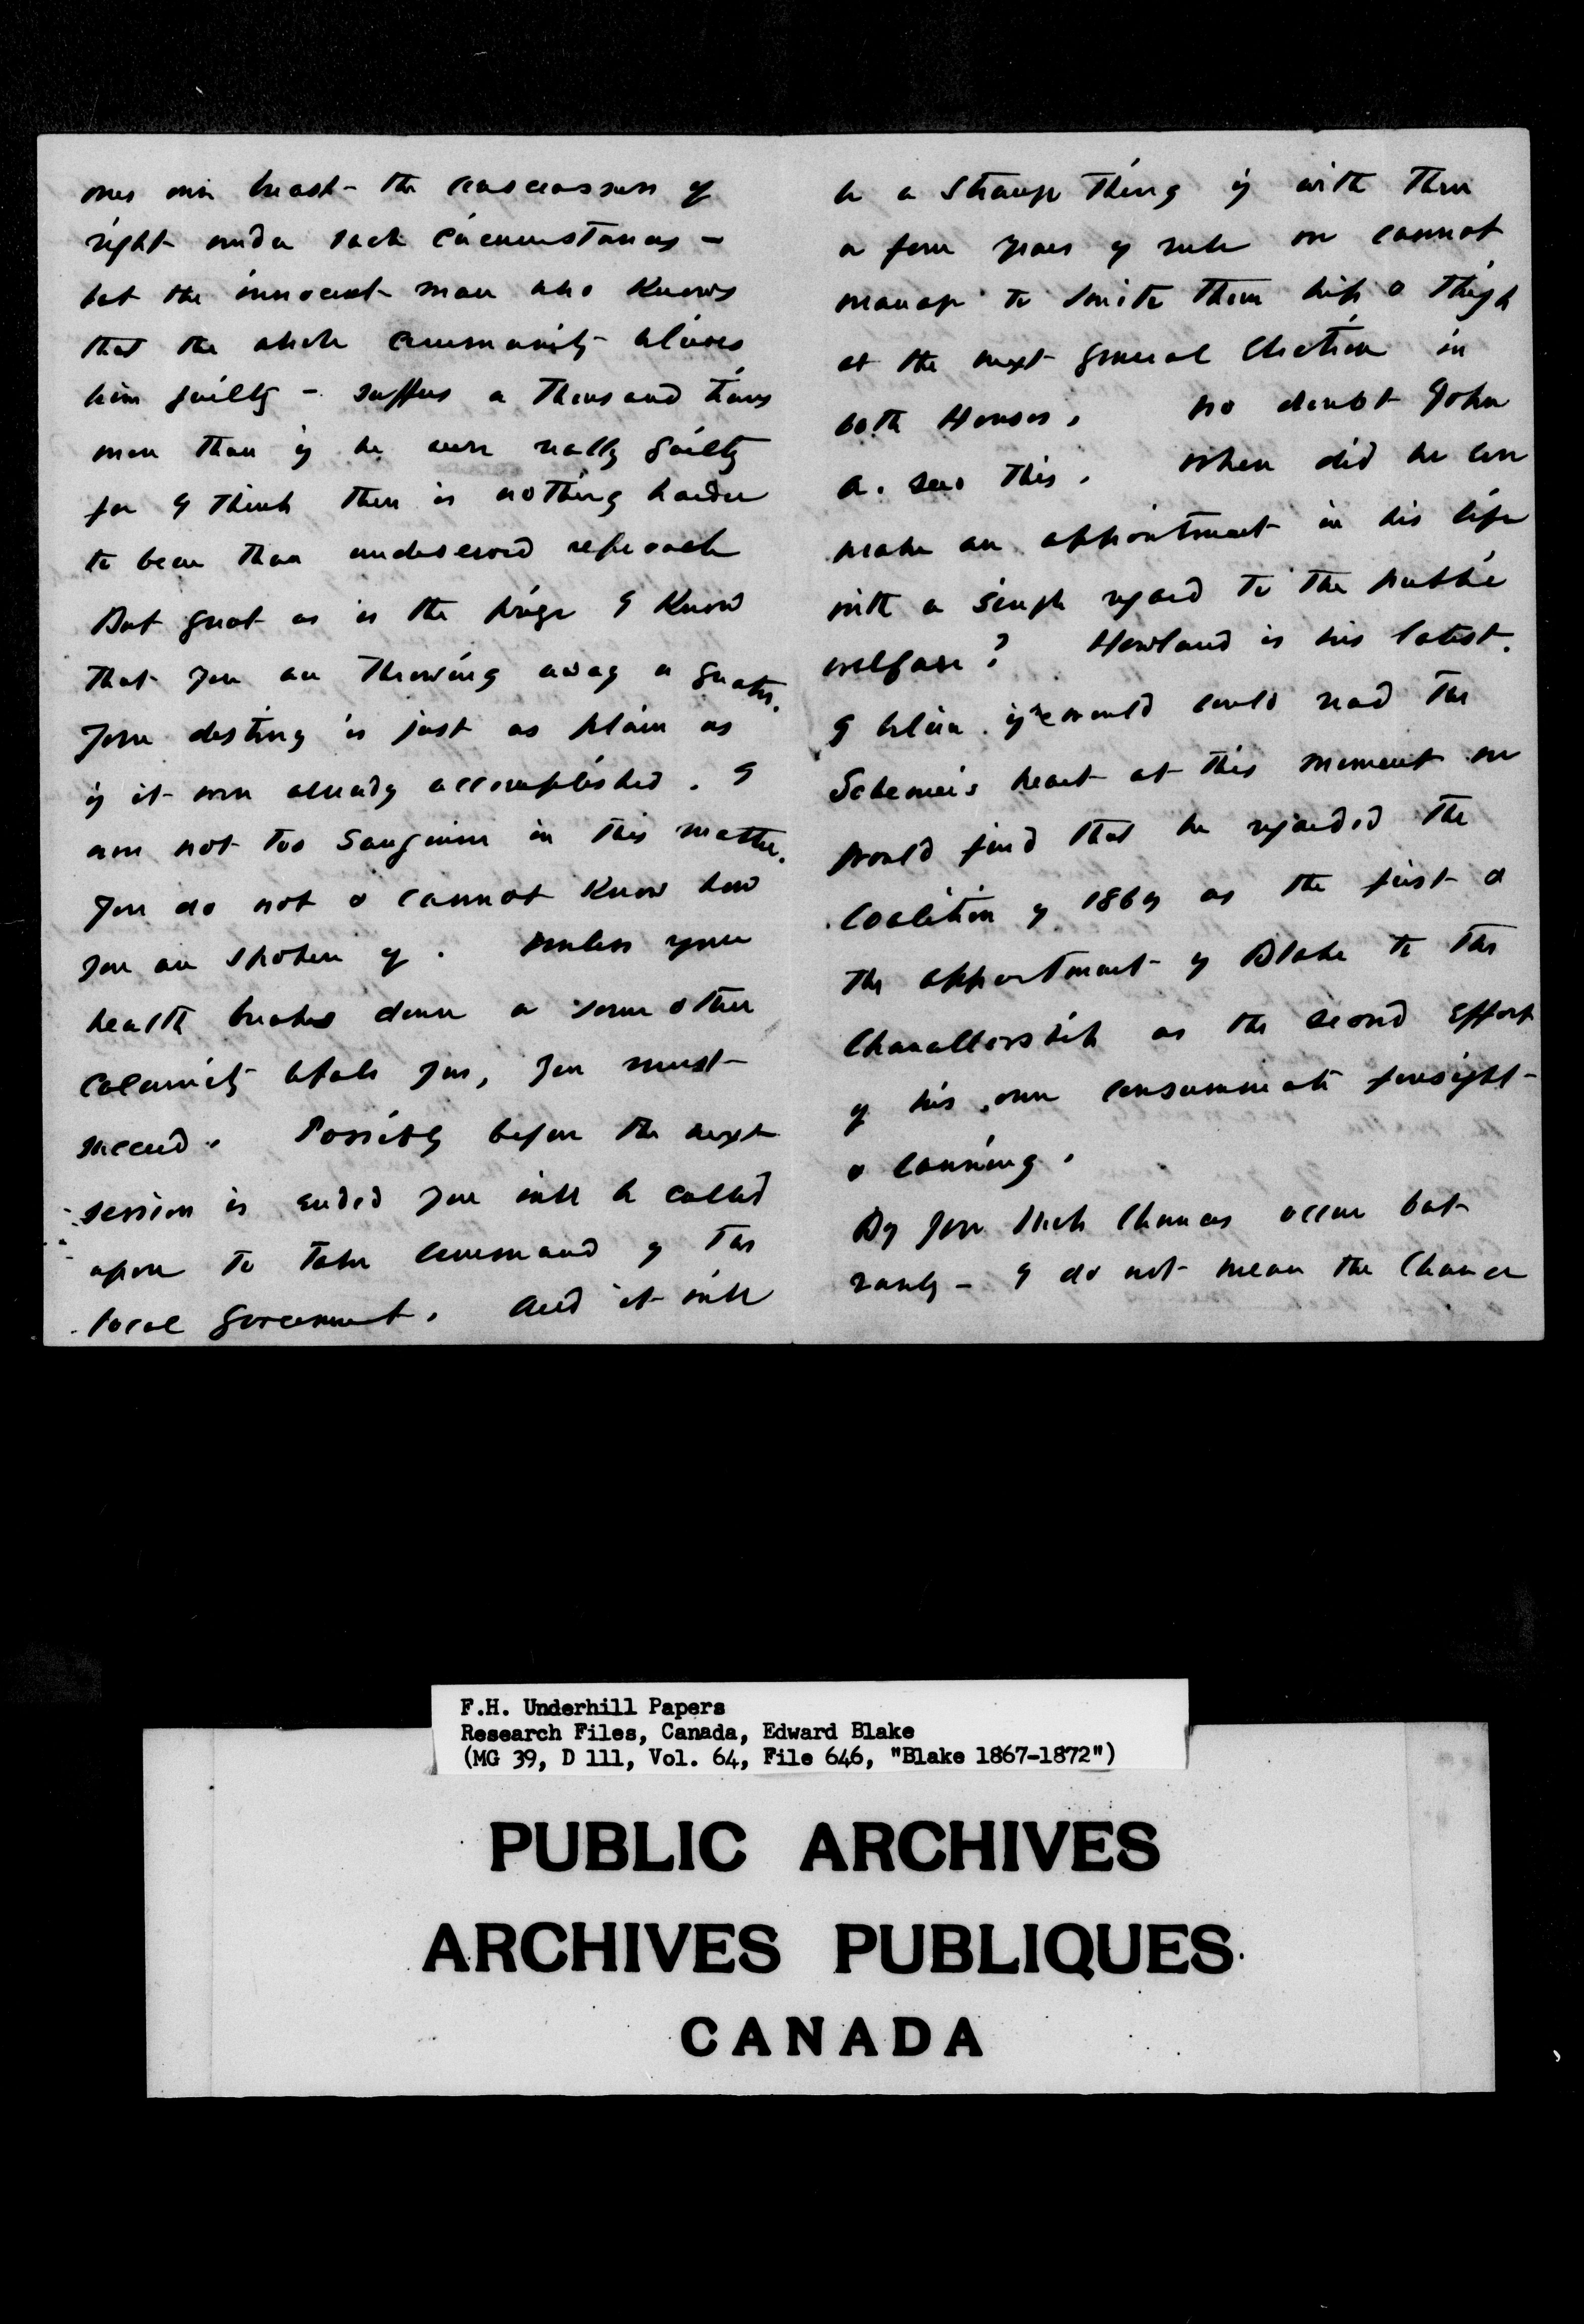 ones own breast - the consciousness of
right under such circumstances -
but the innocent man who knows
that the whole community believes
him guilty - suffers a thousand times
more than if he were really guilty
for I think there is nothing harder
to bear than undeserved reproach
But great as is the prize I know
that you are throwing away a greater.
Your destiny is just as plain as
if it were already accomplished. I
am not too sanguine in this matter.
You do not & cannot know how
you are spoken of. Unless your
health breaks down or some other
calamity befals you, you must
succeed. Possibly before the next
session is ended you will be called
upon to take command of the
local government. And it will
be a strange thing if with three
or four years of rule we cannot
manage to smite them hip & thigh
at the next general election in
both Houses. No doubt John
A. sees this. When did he ever
make an appointment in his life
with a single regard to the public
welfare? Howland is his latest.
I believe if we could read the
Schemer's heart at this moment we
would find that he regarded the
Coalition of 1867 as the first &
the appointment of Blake to the
Chancellorship as the second effort
of his own consummate foresight
& cunning.
By Jove such chances occur but
rarely - I do not mean the chance
F.H. Underhill Papers
Research Files, Canada, Edward Blake
(MG 39, D 111, Vol. 64, File 646, "Blake 1867-1872")
PUBLIC ARCHIVES
ARCHIVES PUBLIQUES
CANADA